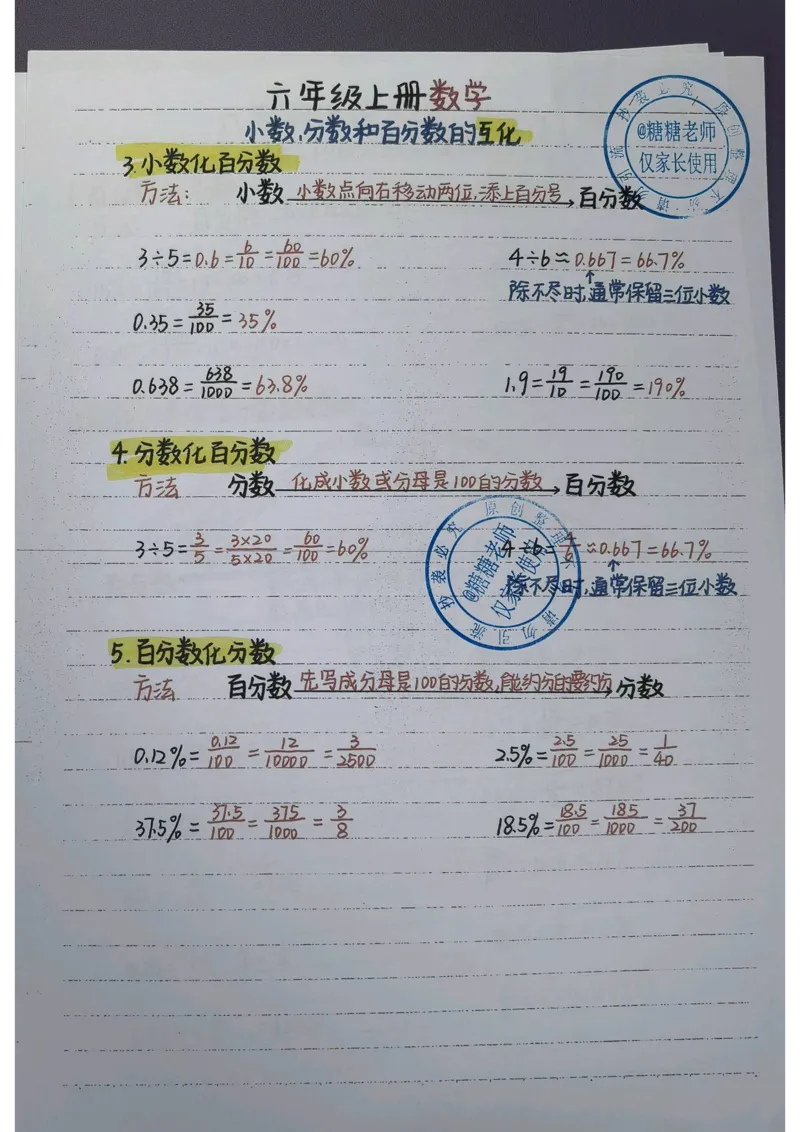 六年级上册数学
小数、分数和百分数的互化
3.小数化百分数
方法: 小数 小数点向右移动两位,添上百分号 → 百分数
3÷5=0.6=6/10=60/100=60%
4÷6≈0.667=66.7%
↑
除不尽时,通常保留三位小数
0.35=35/100=35%
0.638=638/1000=63.8%
1.9=19/10=190/100=190%
4.分数化百分数
方法 分数 化成小数或分母是100的分数 → 百分数
3÷5=3/5=3×20/5×20=60/100=60%
4÷6=4/6≈0.667=66.7%
↑
除不尽时,通常保留三位小数
5.百分数化分数
方法 百分数 先写成分母是100的分数,能约分的要约分 → 分数
0.12%=0.12/100=12/10000=3/2500
2.5%=2.5/100=25/1000=1/40
37.5%=37.5/100=375/1000=3/8
18.5%=18.5/100=185/1000=37/200
抄袭必究 原创整理 请勿引流
@糖糖老师
仅家长使用
抄袭必究 原创整理 请勿引流
@糖糖老师
仅家长使用